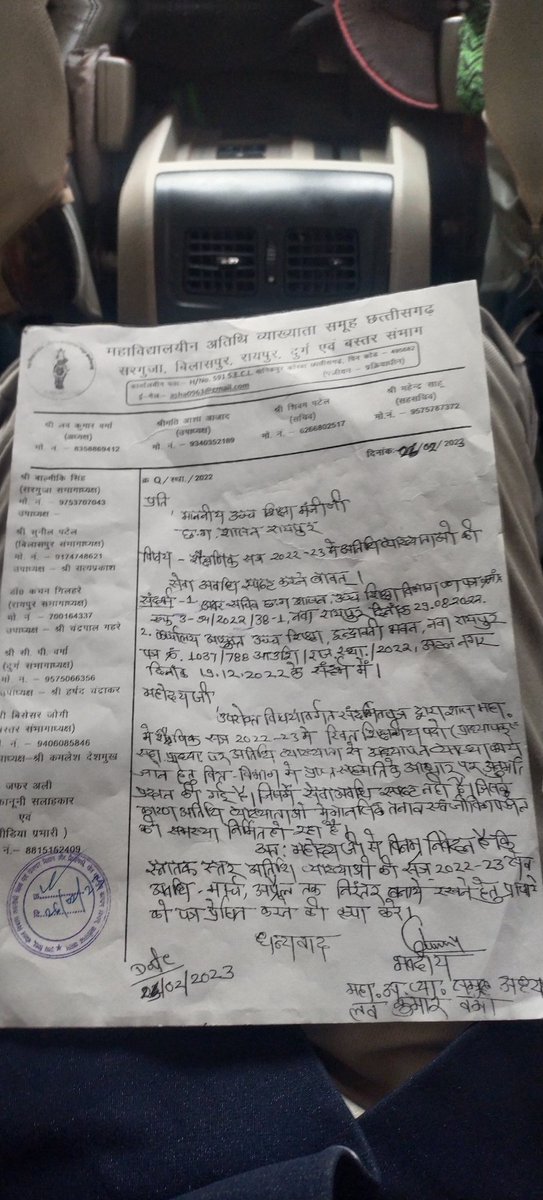 महाविद्यालयीन अतिथि व्याख्याता समूह छत्तीसगढ़
सरगुजा, बिलासपुर, रायपुर, दुर्ग एवं बस्तर संभाग
कार्यालयीन पता - H/No. 591 S.E.C.L.
श्री लव कुमार वर्मा
(अध्यक्ष)
मो. नं. - 8358869412
श्रीमति आशा आजाद
(उपाध्यक्ष)
मो. नं. - 9340352189
श्री शिवम पटेल
(सचिव)
मो. नं. - 6266802517
श्री महेन्द्र साहू
(सहसचिव)
मो. नं. - 9575787372
दिनांक
/02/2023
श्री बाल्मीकि सिंह
(सरगुजा संभागाध्यक्ष)
मो नं. - 9753707043
उपाध्यक्ष -
श्री सुनील पटेल
(बिलासपुर संभागाध्यक्ष)
मो. नं. - 9174748621
उपाध्यक्ष - श्री सत्यप्रकाश
डॉ0 कचन गिलहरे
(रायपुर संभागाध्यक्ष)
नं. - 700164337
उपाध्यक्ष - श्री चंद्रपाल गहरे
श्री सी. पी. वर्मा
(दुर्ग संभागाध्यक्ष)
नं. - 9575066356
उपाध्यक्ष - श्री हर्षद चंद्राकर
बिसेसर जोगी
बस्तर संभागाध्यक्ष)
नं. - 9406085846
पाध्यक्ष-श्री कमलेश देशमुख
जफर अली
कानूनी सलाहकार
एवं
मीडिया प्रभारी )
नं.- 8815162409
क्र Q/स्था./2022
प्रति
माननीय उच्च शिक्षा मंत्री जी
छ.ग शासन रायपुर
विषय - शैक्षणिक सत्र 2022-23 में अतिथि व्याख्याताओं की
सेवा अवधि स्पष्ट करने बाबत।
संदर्भ -1. अवर सचिव छ.ग शासन, उच्च शिक्षा विभाग का पत्र
क्रमांक 3-94/2022/38-1, नवा रायपुर दिनाँक 29.08.2022.
2. कार्यालय आयुक्त उच्च शिक्षा, इन्द्रावती भवन, नवा रायपुर
पत्र क्रं. 1037/788 आउशि/राज.स्था./2022, अटल नगर
दिनाँक 19.12.2022 के संदर्भ में।
महोदय जी
उपरोक्त विषयांतर्गत संदर्भित पत्र द्वारा शास. महा.
में शैक्षणिक सत्र 2022-23 में रिक्त शैक्षणिक पदों
सहा. प्राध्या. पर अतिथि व्याख्याता से अध्यापन व्यवस्था कराये
जाने हेतु वित्त-विभाग से प्राप्त सहमति के आधार पर अनुमति
प्रदान की गई है। जिसमें सेवा अवधि स्पष्ट नहीं है। जिसके
कारण अतिथि व्याख्याताओं में मानसिक तनाव एवं जीविकोपार्जन
की समस्या निर्मित हो रहा है।
अतः महोदय जी से विनम्र निवेदन है कि
स्नातक स्तर अतिथि व्याख्याओं की सत्र 2022-23
अवधि - मार्च, अप्रैल तक निरंतर बनाये रखने हेतु प्राचार्य
को पत्र प्रेषित करने की कृपा करें।
धन्यवाद
भवदीय
महा. अ. व्या. समूह अध्यक्ष
लव कुमार वर्मा
Date
/02/2023